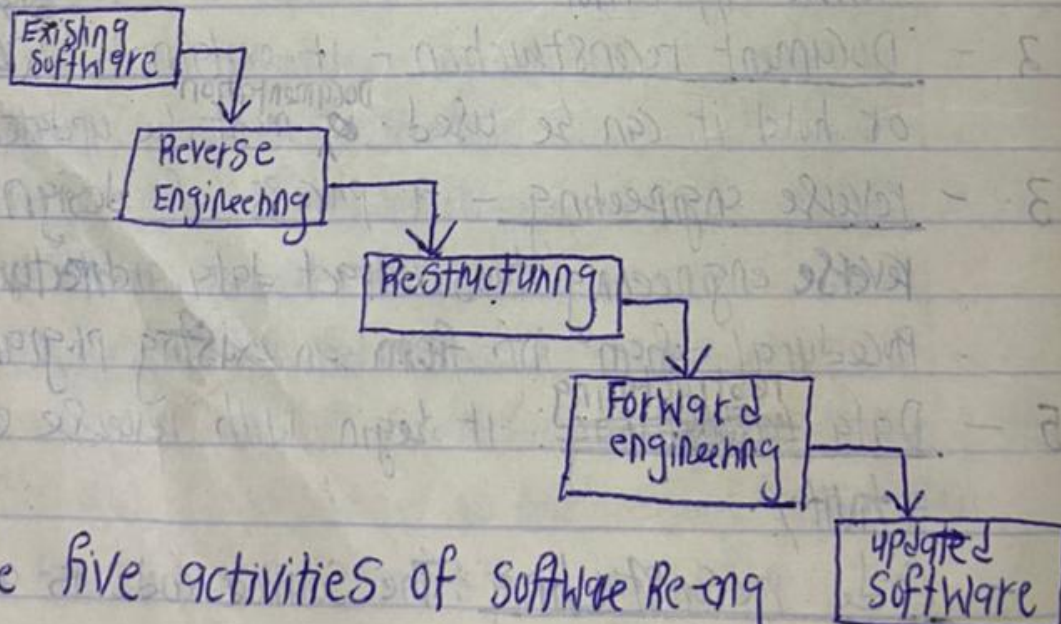 Existing
Software
Reverse
Engineering
Restructuring
Forward
engineering
updated
Software
five activities of Software Re-eng